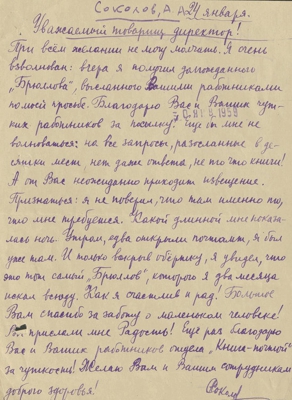 Соколов, А. А. 24 января.
Уважаемый товарищ директор!
При всём желании не могу молчать. Я очень
взволнован: вчера я получил долгожданного
„Брюллова", высланного Вашими работниками
по моей просьбе. Благодарю Вас и Ваших чут-
ких работников за посылку. Еще бы мне не
волноваться: на все запросы, разосланные в де-
сятки мест, нет даже ответа, не то что книги!
А от Вас неожиданно приходит извещение.
Признаться: я не поверил, что там именно то,
что мне требуется. Какой длинной мне показа-
лась ночь. Утром, едва открыли почтамт, я был
уже там. И только вскрыв обертку, я увидел, что
это тот самый „Брюллов", которого я два месяца
искал всюду. Как я счастлив и рад! Большое
Вам спасибо за заботу о маленьком человеке!
Вы прислали мне Радость! Еще раз благодарю
Вас и Ваших работников отдела „Книга-почтой"
за чуткость! Желаю Вам и Вашим сотрудникам
доброго здоровья!
Соколов